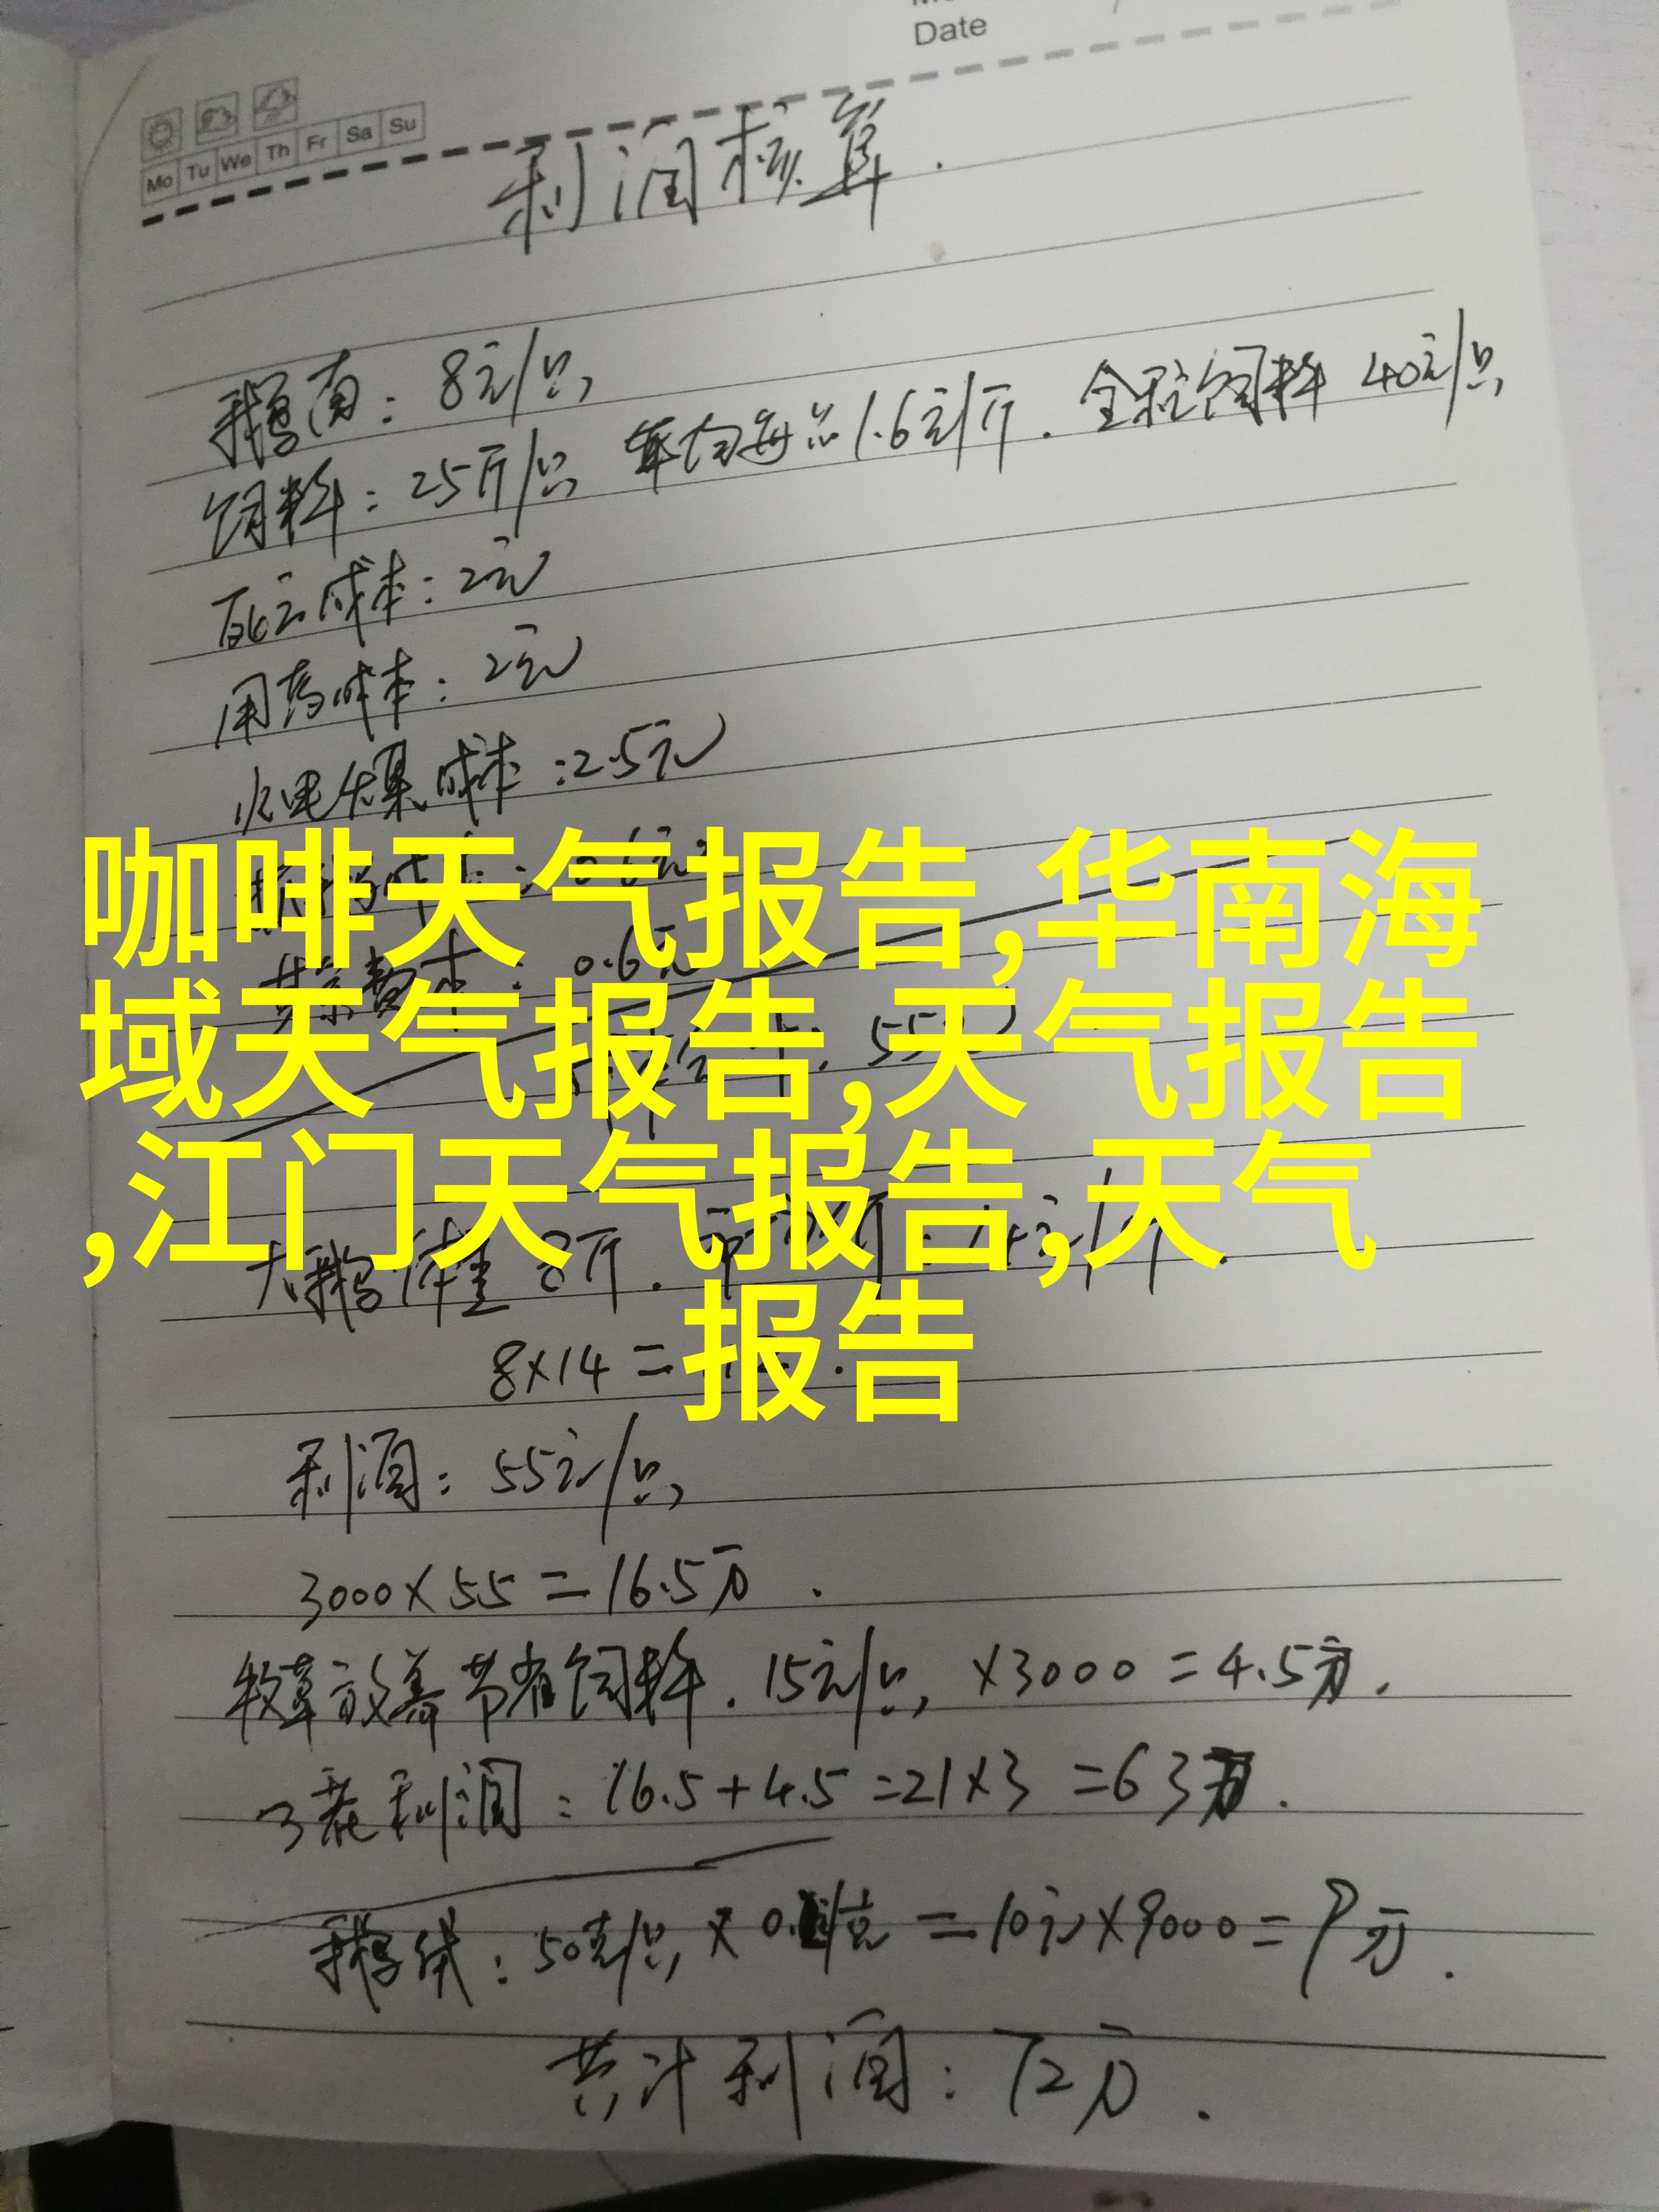 Date
Mo Tu We Th Fr Sa Su
利润核算.
鹅苗: 8元/只,
饲料: 25斤/只, 平均每斤1.6元/斤. 全程饲料 40元/只,
死亡成本: 2元
用药成本: 2元
水电煤成本: 2.5元
咖啡天气报告,华南海
0.6元
域天气报告,天气报告
,江门天气报告,天气
大鹅体重 8斤.
报告
8×14=
利润: 55元/只,
3000×55=16.5万.
牧草放养节省饲料. 15元/只, ×3000=4.5万.
3茬利润: 16.5+4.5=21×3=63万.
鹅绒: 50克/只, × =10元×9000=9万.
共计利润: 72万.